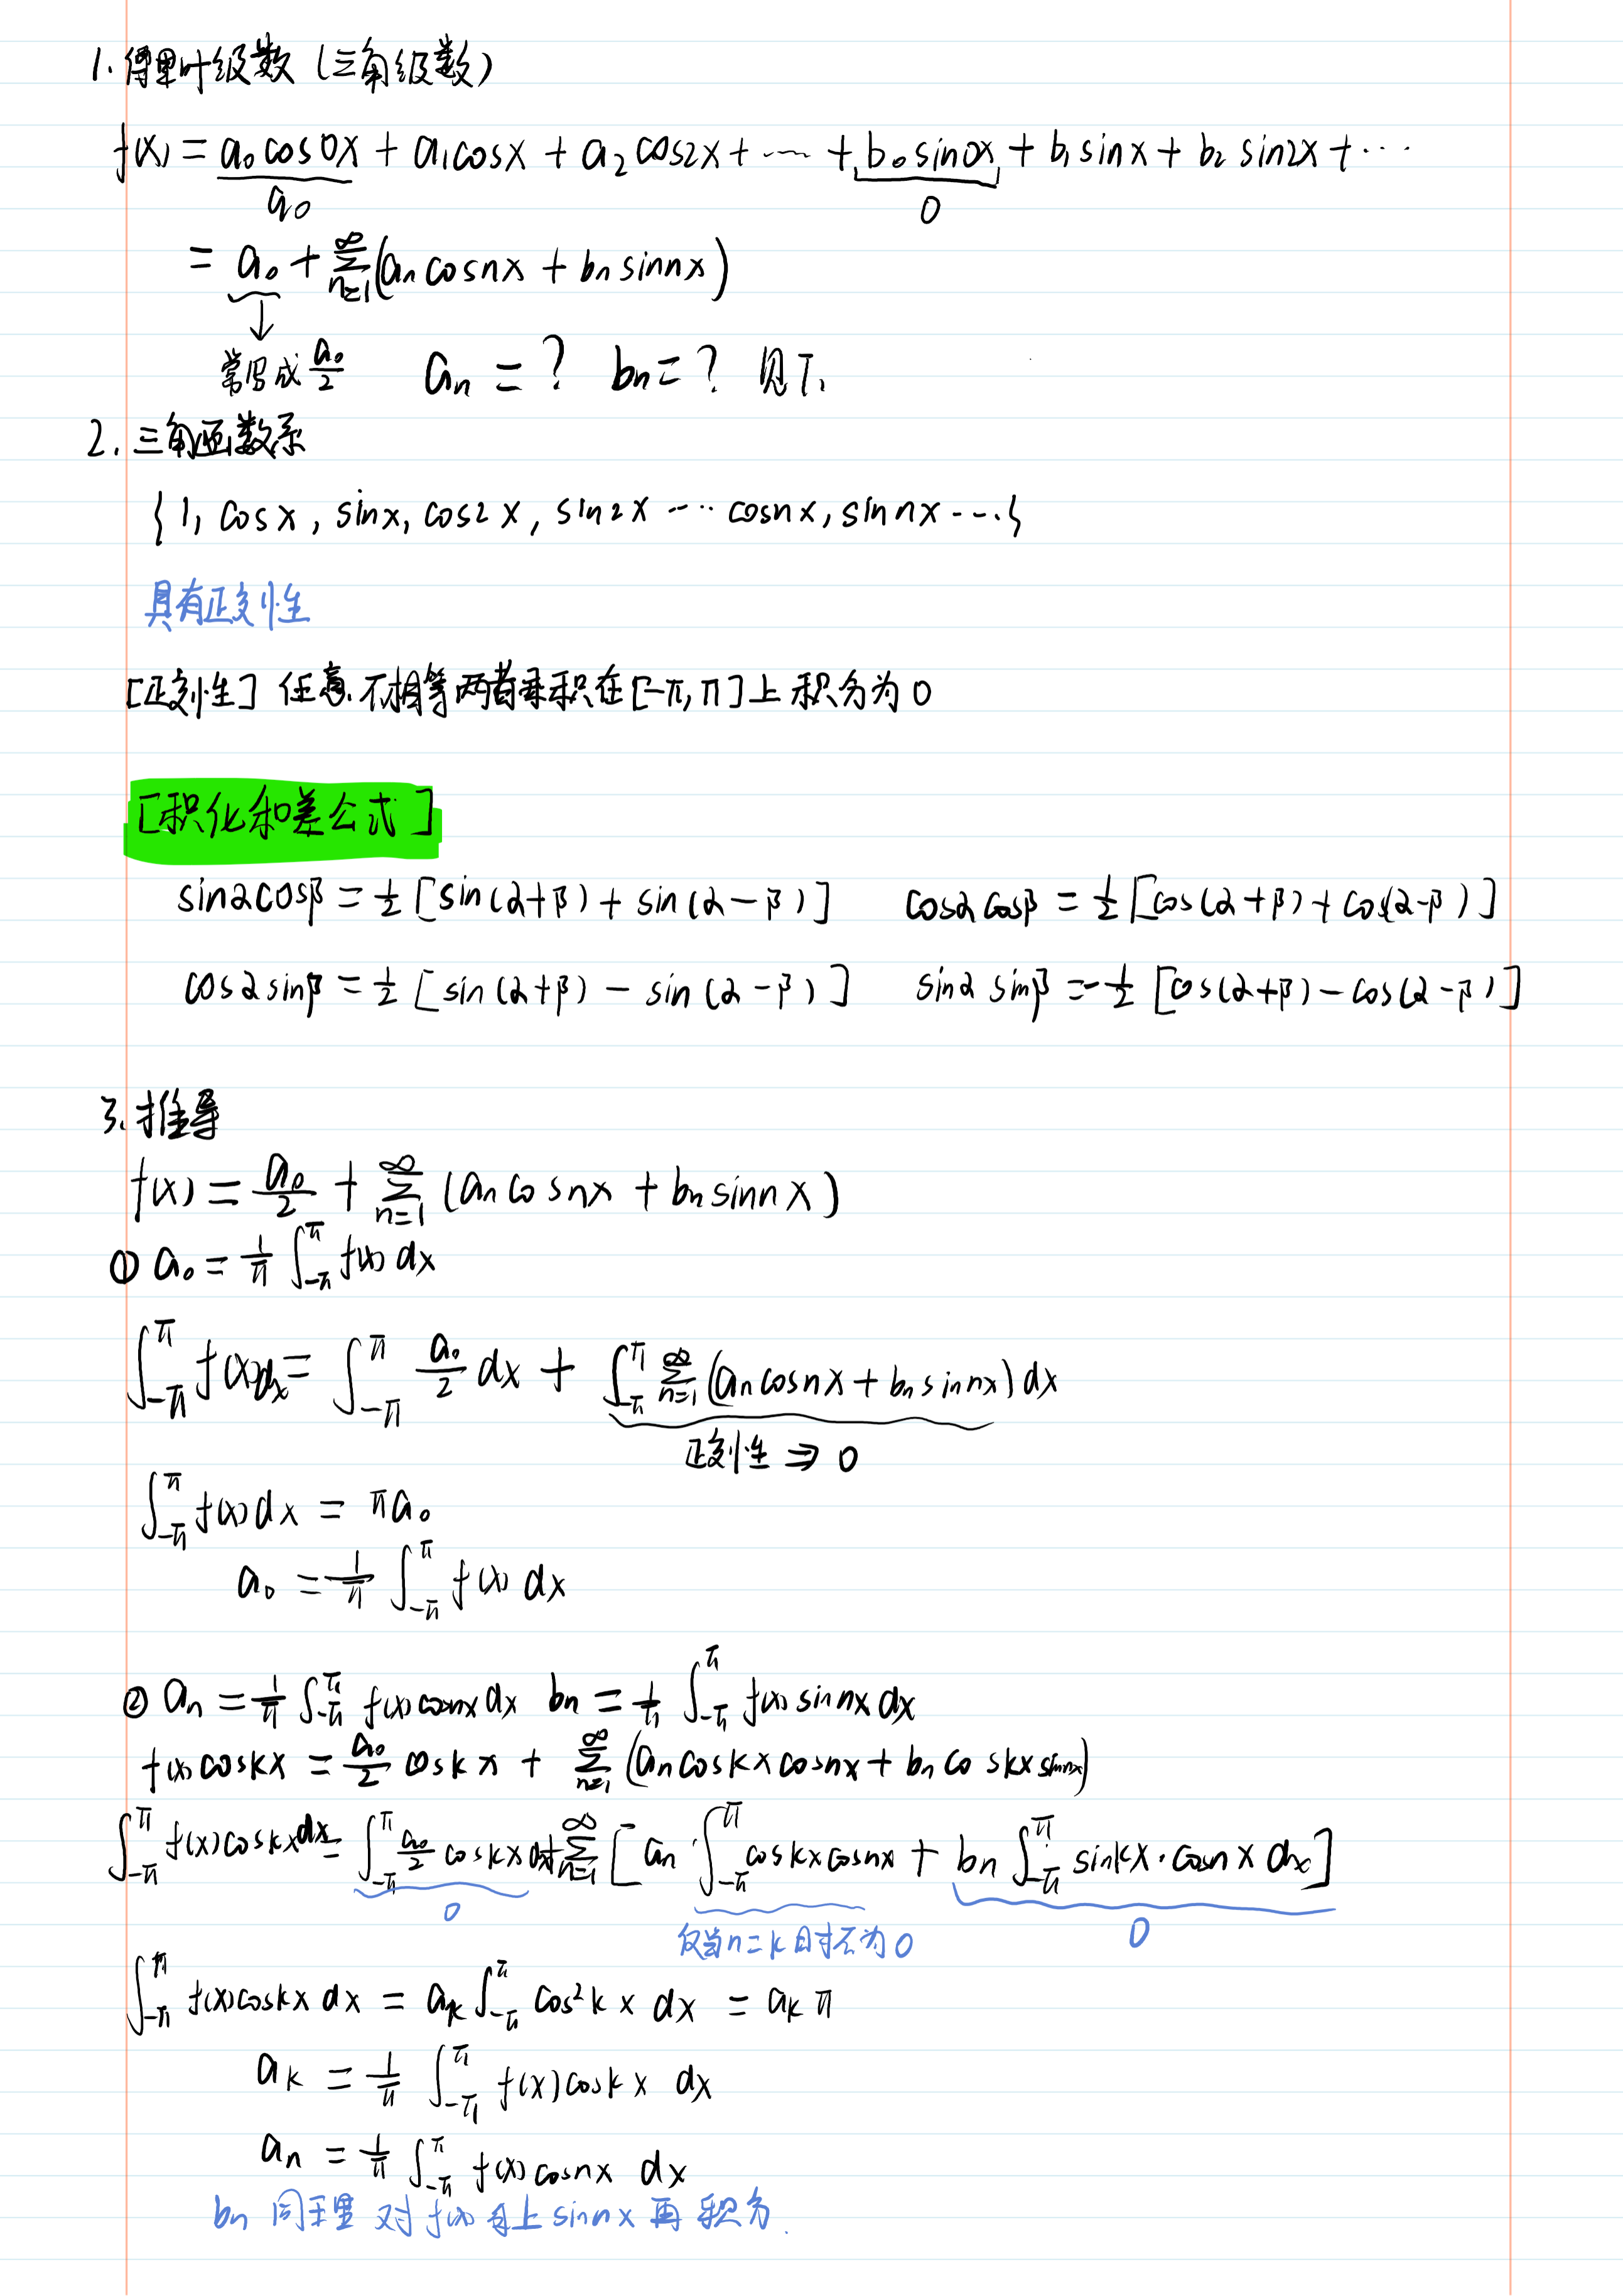 1. 傅里叶级数 (三角级数)
f(x) = a₀cos0x + a₁cosx + a₂cos2x + ⋯ + b₀sin0x + b₁sinx + b₂sin2x + ⋯
a₀ 0
= a₀ + ∑_{n=1}^{∞} (aₙcosnx + bₙsinnx)
↓
常写成 a₀/2 aₙ = ? bₙ = ? 见下.
2. 三角函数系
{1, cosx, sinx, cos2x, sin2x ⋯ cosnx, sinnx ⋯}
具有正交性
[正交性] 任意不相等两者乘积在[-π, π]上积分为0
[积化和差公式]
sinαcosβ = ½[sin(α+β) + sin(α-β)] cosαcosβ = ½[cos(α+β) + cos(α-β)]
cosαsinβ = ½[sin(α+β) - sin(α-β)] sinαsinβ = -½[cos(α+β) - cos(α-β)]
3. 推导
f(x) = a₀/2 + ∑_{n=1}^{∞} (aₙcosnx + bₙsinnx)
① a₀ = 1/π ∫_{-π}^{π} f(x) dx
∫_{-π}^{π} f(x)dx = ∫_{-π}^{π} a₀/2 dx + ∫_{-π}^{π} ∑_{n=1}^{∞} (aₙcosnx + bₙsinnx) dx
正交性 ⇒ 0
∫_{-π}^{π} f(x)dx = πa₀
a₀ = 1/π ∫_{-π}^{π} f(x) dx
② aₙ = 1/π ∫_{-π}^{π} f(x)cosnx dx bₙ = 1/π ∫_{-π}^{π} f(x)sinnx dx
f(x)coskx = a₀/2 coskx + ∑_{n=1}^{∞} (aₙcoskxcosnx + bₙcoskxsinnx)
∫_{-π}^{π} f(x)coskxdx = ∫_{-π}^{π} a₀/2 coskx dx + ∑_{n=1}^{∞} [aₙ ∫_{-π}^{π} coskxcosnx + bₙ ∫_{-π}^{π} sinkx·cosnx dx]
0 仅当n=k时不为0 0
∫_{-π}^{π} f(x)coskx dx = aₖ ∫_{-π}^{π} cos²kx dx = aₖπ
aₖ = 1/π ∫_{-π}^{π} f(x)coskx dx
aₙ = 1/π ∫_{-π}^{π} f(x)cosnx dx
bₙ 同理 对f(x)乘上sinnx再积分.